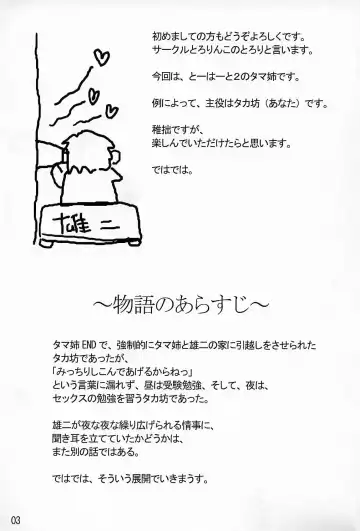 初めましての方もどうぞよろしくです。
サークルとろりんこのとろりと言います。
今回は、とーはーと2のタマ姉です。
例によって、主役はタカ坊（あなた）です。
稚拙ですが、
楽しんでいただけたらと思います。
ではでは。
雄二
～物語のあらすじ～
タマ姉ENDで、強制的にタマ姉と雄二の家に引越しをさせられた
タカ坊であったが、
「みっちりしこんであげるからねっ」
という言葉に漏れず、昼は受験勉強、そして、夜は、
セックスの勉強を習うタカ坊であった。
雄二が夜な夜な繰り広げられる情事に、
聞き耳を立てていたかどうかは、
また別の話ではある。
ではでは、そういう展開でいきまうす。
03